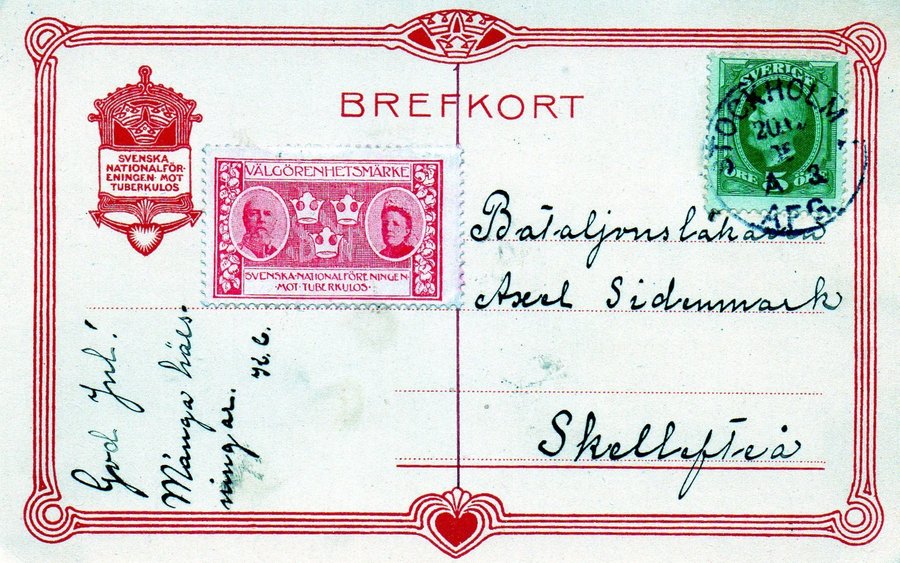 BREFKORT
SVENSKA
NATIONALFÖR-
ENINGEN · MOT
TUBERKULOS
VÄLGÖRENHETSMÄRKE
SVENSKA·NATIONALFÖRENINGEN·
·MOT·TUBERKULOS·
SVERIGE
STOCKHOLM
A 3
AFG.
Bataljonsläkaren
Axel Sidenmark
Skellefteå
God Jul!
Många häls-
ningar.